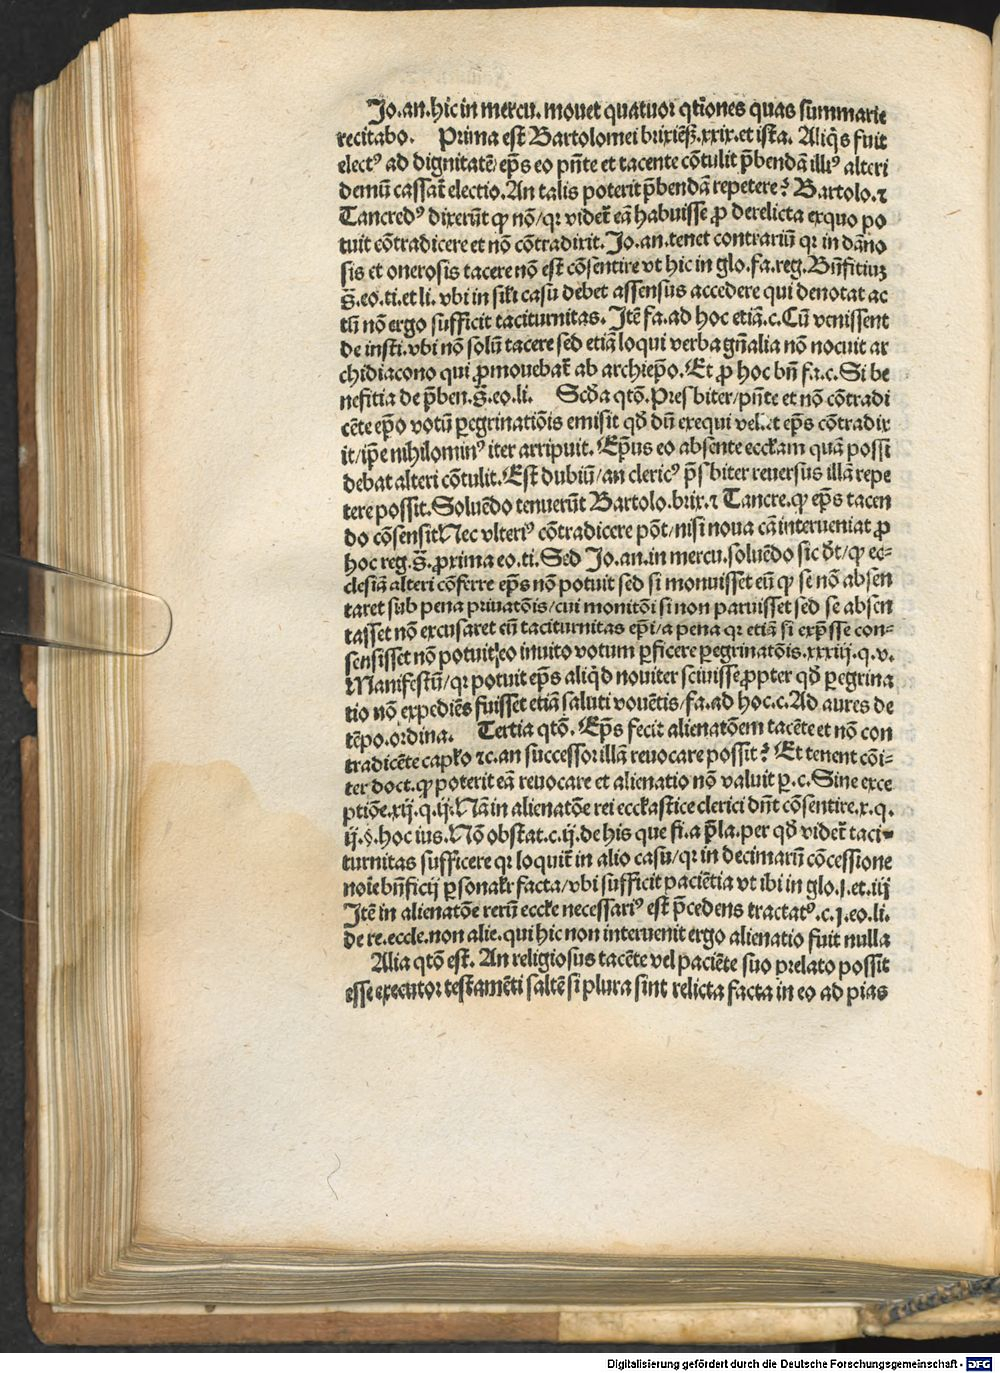 Jo.an.hic in mercu. mouet quatuor qtiōnes quas summarie
recitabo. Prima est Bartolomei brixiēs̄.xxix.et ista. Aliqs̄ fuit
elect⁹ ad dignitatē/ ep̄s eo pn̄te et tacente cōtulit p̄bendā illi⁹ alteri
demū cassat̄ electio. An talis poterit p̄bendā repetere? Bartolo.⁊
Tancred⁹ dixerūt ꝙ nō/qꝛ videt̄ eā habuisse ꝓ derelicta exquo po
tuit cōtradicere et nō cōtradixit. Jo.an.tenet contrariū qꝛ in dāno
sis et onerosis tacere nō est cōsentire vt hic in glo.fa.reg.Bn̄fitiuꝫ
s̄.eo.ti.et li. vbi in sil̄i casu debet assensus accedere qui denotat ac
tū nō ergo sufficit taciturnitas. Itē fa.ad hoc etiā.c.Cū venissent
de insti.vbi nō solū tacere sed etiā loqui verba gn̄alia nō nocuit ar
chidiacono qui ꝓmouebat̄ ab archiep̄o. Et ꝓ hoc bn̄ f.r.c.Si be
nefitia de p̄ben.s̄.eo.li. Scd̄a qtō. Presbiter/pn̄te et nō cōtradi
cēte ep̄o votū ꝑegrinatiōis emisit qd̄ dū exequi vellet ep̄s cōtradix
it/ip̄e nihilomin⁹ iter arripuit. Ep̄us eo absente eccl̄am quā possi
debat alteri cōtulit. Est dubiū/an cleric⁹ p̄sbiter reuersus illā repe
tere possit. Soluēdo tenuerūt Bartolo.brix.⁊ Tancre.ꝙ ep̄s tacen
do cōsensit/Nec vlteri⁹ cōtradicere pōt/nisi noua cā interueniat ꝓ
hoc reg.s̄.ꝓxima eo.ti. Sed Jo.an.in mercu.soluēdo sic dt̄/ꝙ ec-
clesiā alteri cōferre ep̄s nō potuit sed si monuisset eū ꝙ se nō absen
taret sub pena priuatōis/cui monitōi si non paruisset sed se absen
tasset nō excusaret eū taciturnitas ep̄i/a pena qꝛ etiā si exp̄sse con-
sensisset nō potuit/eo inuito votum ꝑficere ꝑegrinatōis.xxxiij.q.v.
Manifestū/qꝛ potuit ep̄s aliq̄d nouiter sciuisse ꝓpter qd̄ ꝑegrina
tio nō expediēs fuisset etiā saluti vouētis/fa.ad hoc.c.Ad aures de
tēpo.ordina. Tertia qtō. Ep̄s fecit alienatōem tacēte et nō con
tradicēte capl̄o ⁊c.an successor illā reuocare possit? Et tenent cōi-
ter doct.ꝙ poterit eā reuocare et alienatio nō valuit ꝑ.c. Sine exce
ptiōe.xij.q.ij. Nā in alienatōe rei eccl̄astice clerici dn̄t cōsentire.x.q.
ij.§.hoc ius. Nō obstat.c.ij.de his que fi.a p̄la.per qd̄ videt̄ taci-
turnitas sufficere qꝛ loquit̄ in alio casu/qꝛ in decimarū cōcessione
noīe bn̄ficij ꝑsonal̄r facta/vbi sufficit paciētia vt ibi in glo.j.et.iij
Itē in alienatōe rerū eccl̄e necessari⁹ est p̄cedens tractat⁹.c.j.eo.li.
de re.eccle.non alie.qui hic non interuenit ergo alienatio fuit nulla
Alia qtō est. An religiosus tacēte vel paciēte suo prelato possit
esse executor testamēti saltē si plura sint relicta facta in eo ad pias
Digitalisierung gefördert durch die Deutsche Forschungsgemeinschaft - DFG